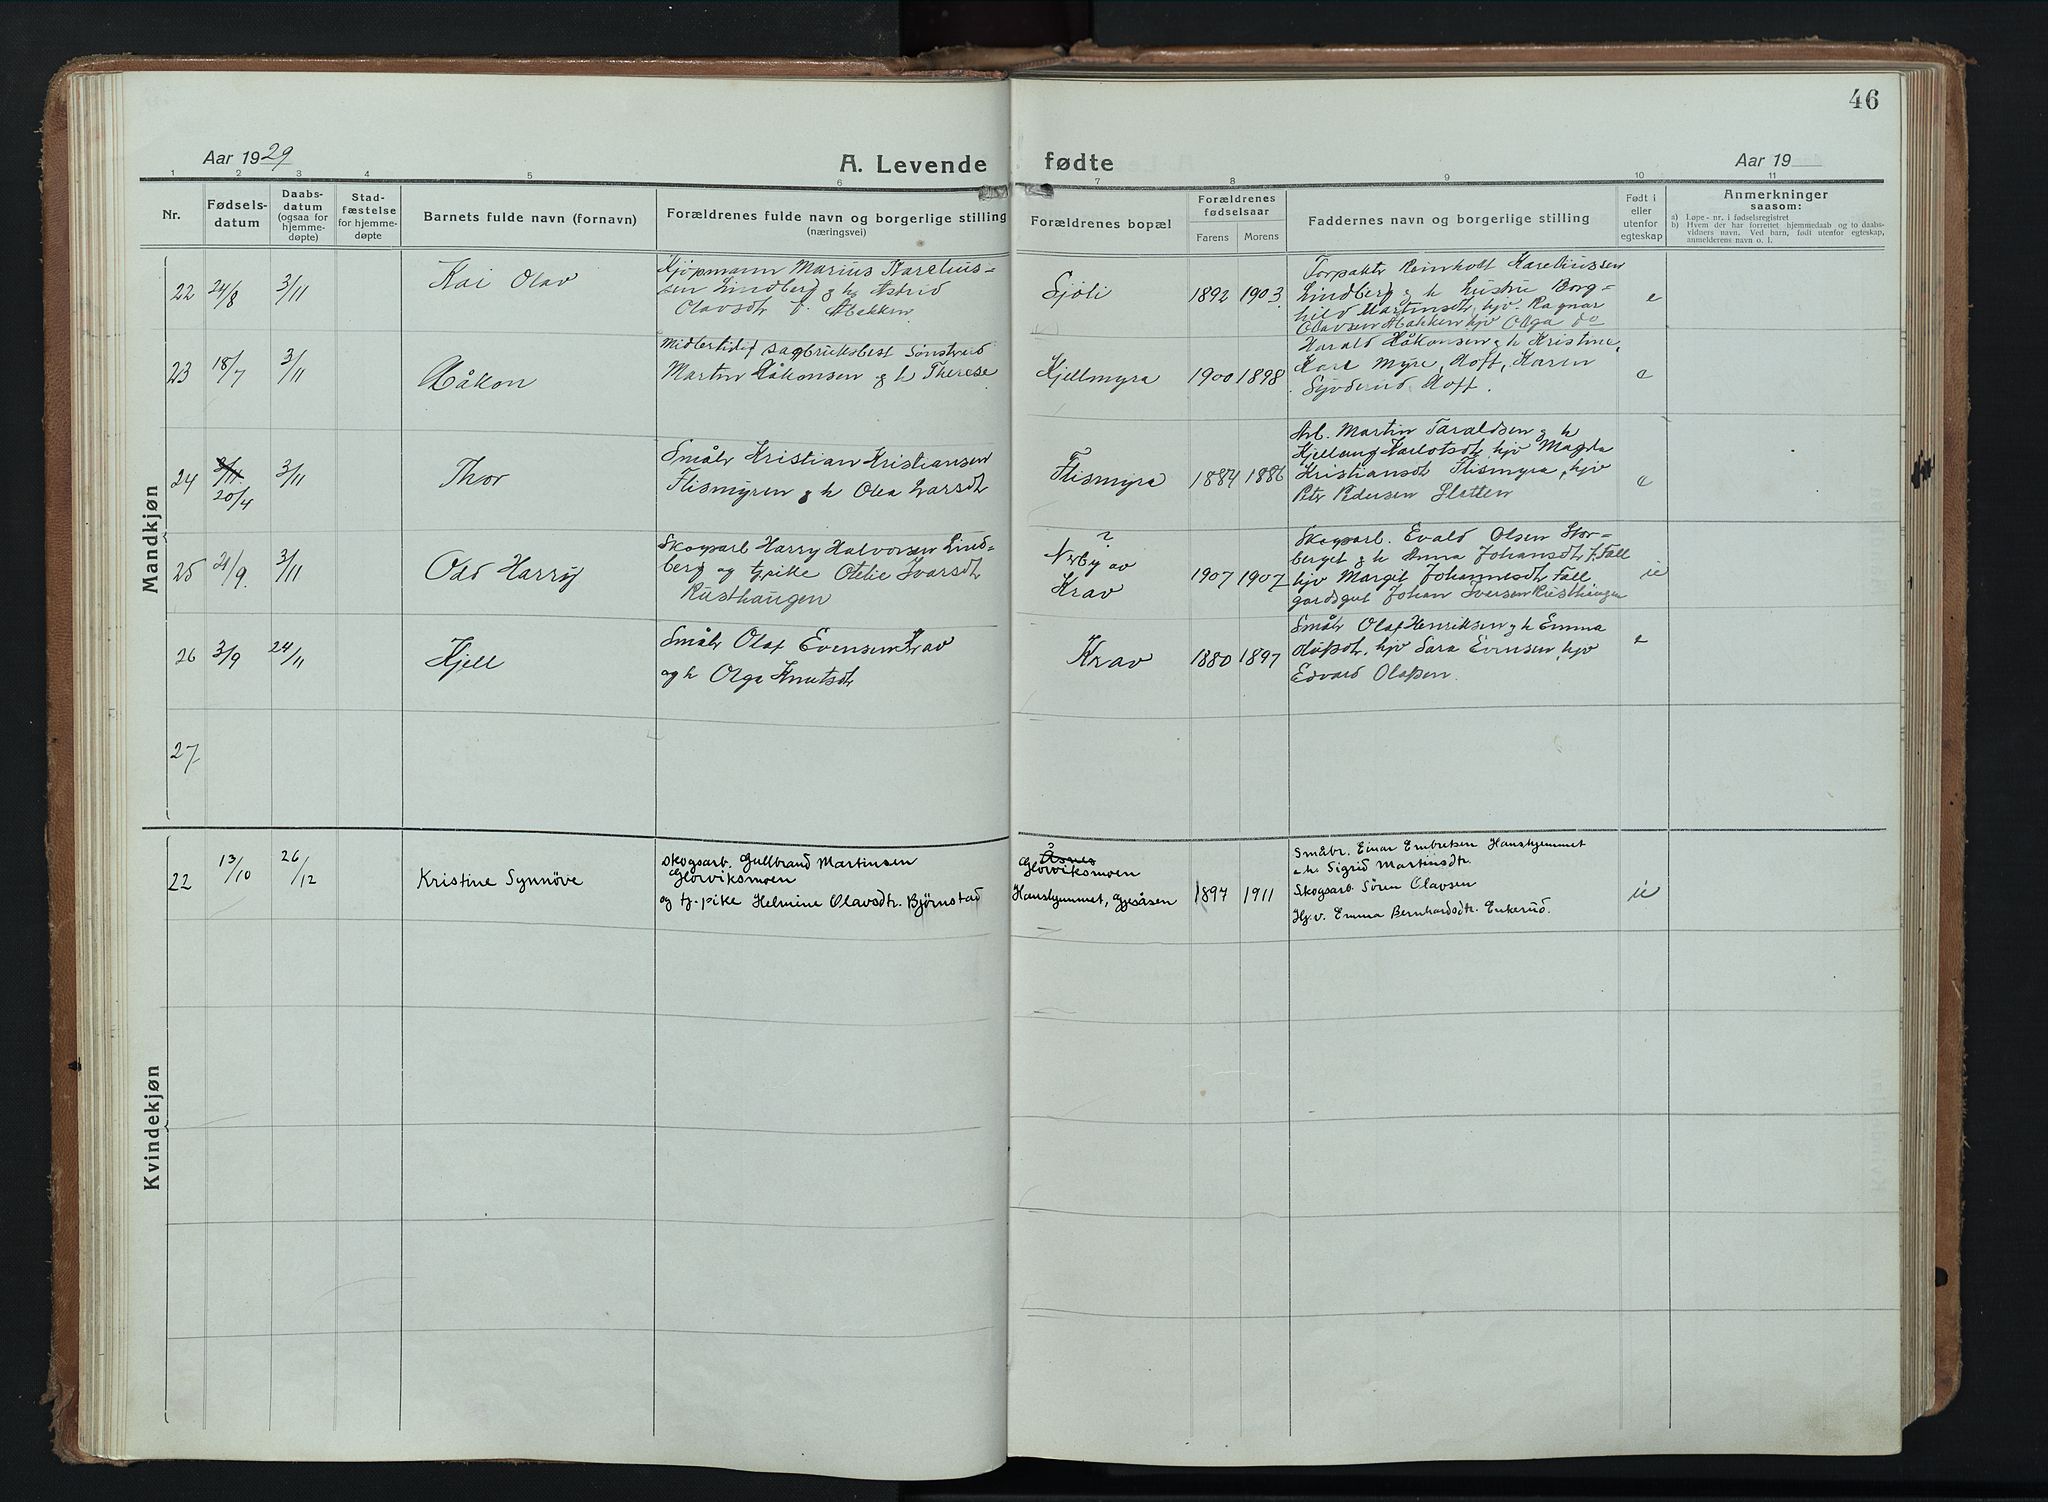 46
Aar 1929
A. Levende fødte
Aar 19
1 2 3 4 5 6 7 8 9 10 11
Nr.
Fødsels-
datum
Daabs-
datum
(ogsaa for
hjemme-
døpte)
Stad-
fæstelse
for hjemme-
døpte
Barnets fulde navn (fornavn)
Forældrenes fulde navn og borgerlige stilling
(næringsvei)
Forældrenes bopæl
Forældrenes
fødselsaar
Farens Morens
Faddernes navn og borgerlige stilling
Født i
eller
utenfor
egteskap
Anmerkninger
saasom:
a) Løpe-nr. i fødselsregistret
b) Hvem der har forrettet hjemmedaab og to daabs-
vidners navn. Ved barn, født utenfor egteskap,
anmelderens navn o. l.
Mandkjøn
22 24/8 3/11
Kai Olav
Kjøpmann Marius Karelius-
sen Lindberg g h Astrid
Olavsdtr f. Bakken
Sjøli
1892 1903
Forpakter Reinholt Kareliussen
Lindberg g h Borg-
hild Martinsdtr, hjv. Ragnar
Olavsen Bakken hjv Olga do
e
23 18/7 3/11
Håkon
Midlertidig sagbruksbest Sønsterud
Martin Håkonsen g h Therese
Kjellmyra
1900 1898
Harald Håkonsen g h Kristine,
Kare Myre, Hoff, Karen
Hoff.
e
24 3/11 20/4 3/11
Thor
Småbr Kristian Kristiansen
Flismyren g h Olea Larsdtr
Flismyra
1884 1886
Arb. Martin Taraldsen g h
Kjellaug Karlotsdtr, hjv Magda
Kristiansdt Flismyra, hjv
Petr Pedersen Sletten
e
25 21/9. 3/11
Odd Harry
Skogsarb Harry Halvorsen Lind-
berg og tj.pike Otelie Ivarsdtr
Rusthaugen
?
Nerby av
Krav
1907 1907
Skogsarb. Evald Olsen Stor-
berget g h Anna Johansdtr f. Fall
hjv Margit Johannesdtr Fall
gardsgut Johan Iversen Rusthaugen
ie
26 3/9 24/11
Kjell
Småbr Olaf Evensen Krav
og h Olga Knutsdtr
Krav
1880 1897
Småbr Olaf Henriksen g h Emma
Olafsdtr, hjv Sara Evensen, hjv
Edvard Olafsen.
e
27
Kvindekjøn
22 13/10 26/12
Kristine Synnøve
Skogsarb. Gullbrand Martinsen
Glorviksmoen
og tj.-pike Helmine Olavsdtr. Bjørnstad
Åsnes
Glorviksmoen
Hanshjemmet, Gjesåsen
1897 1911
Småbr. Einar Embretsen Hanshjemmet
o.h. Sigrid Martinsdtr.
Skogsarb. Søren Olavsen
Hj.v. Emma Bernhardsdtr. Enkerud.
ie